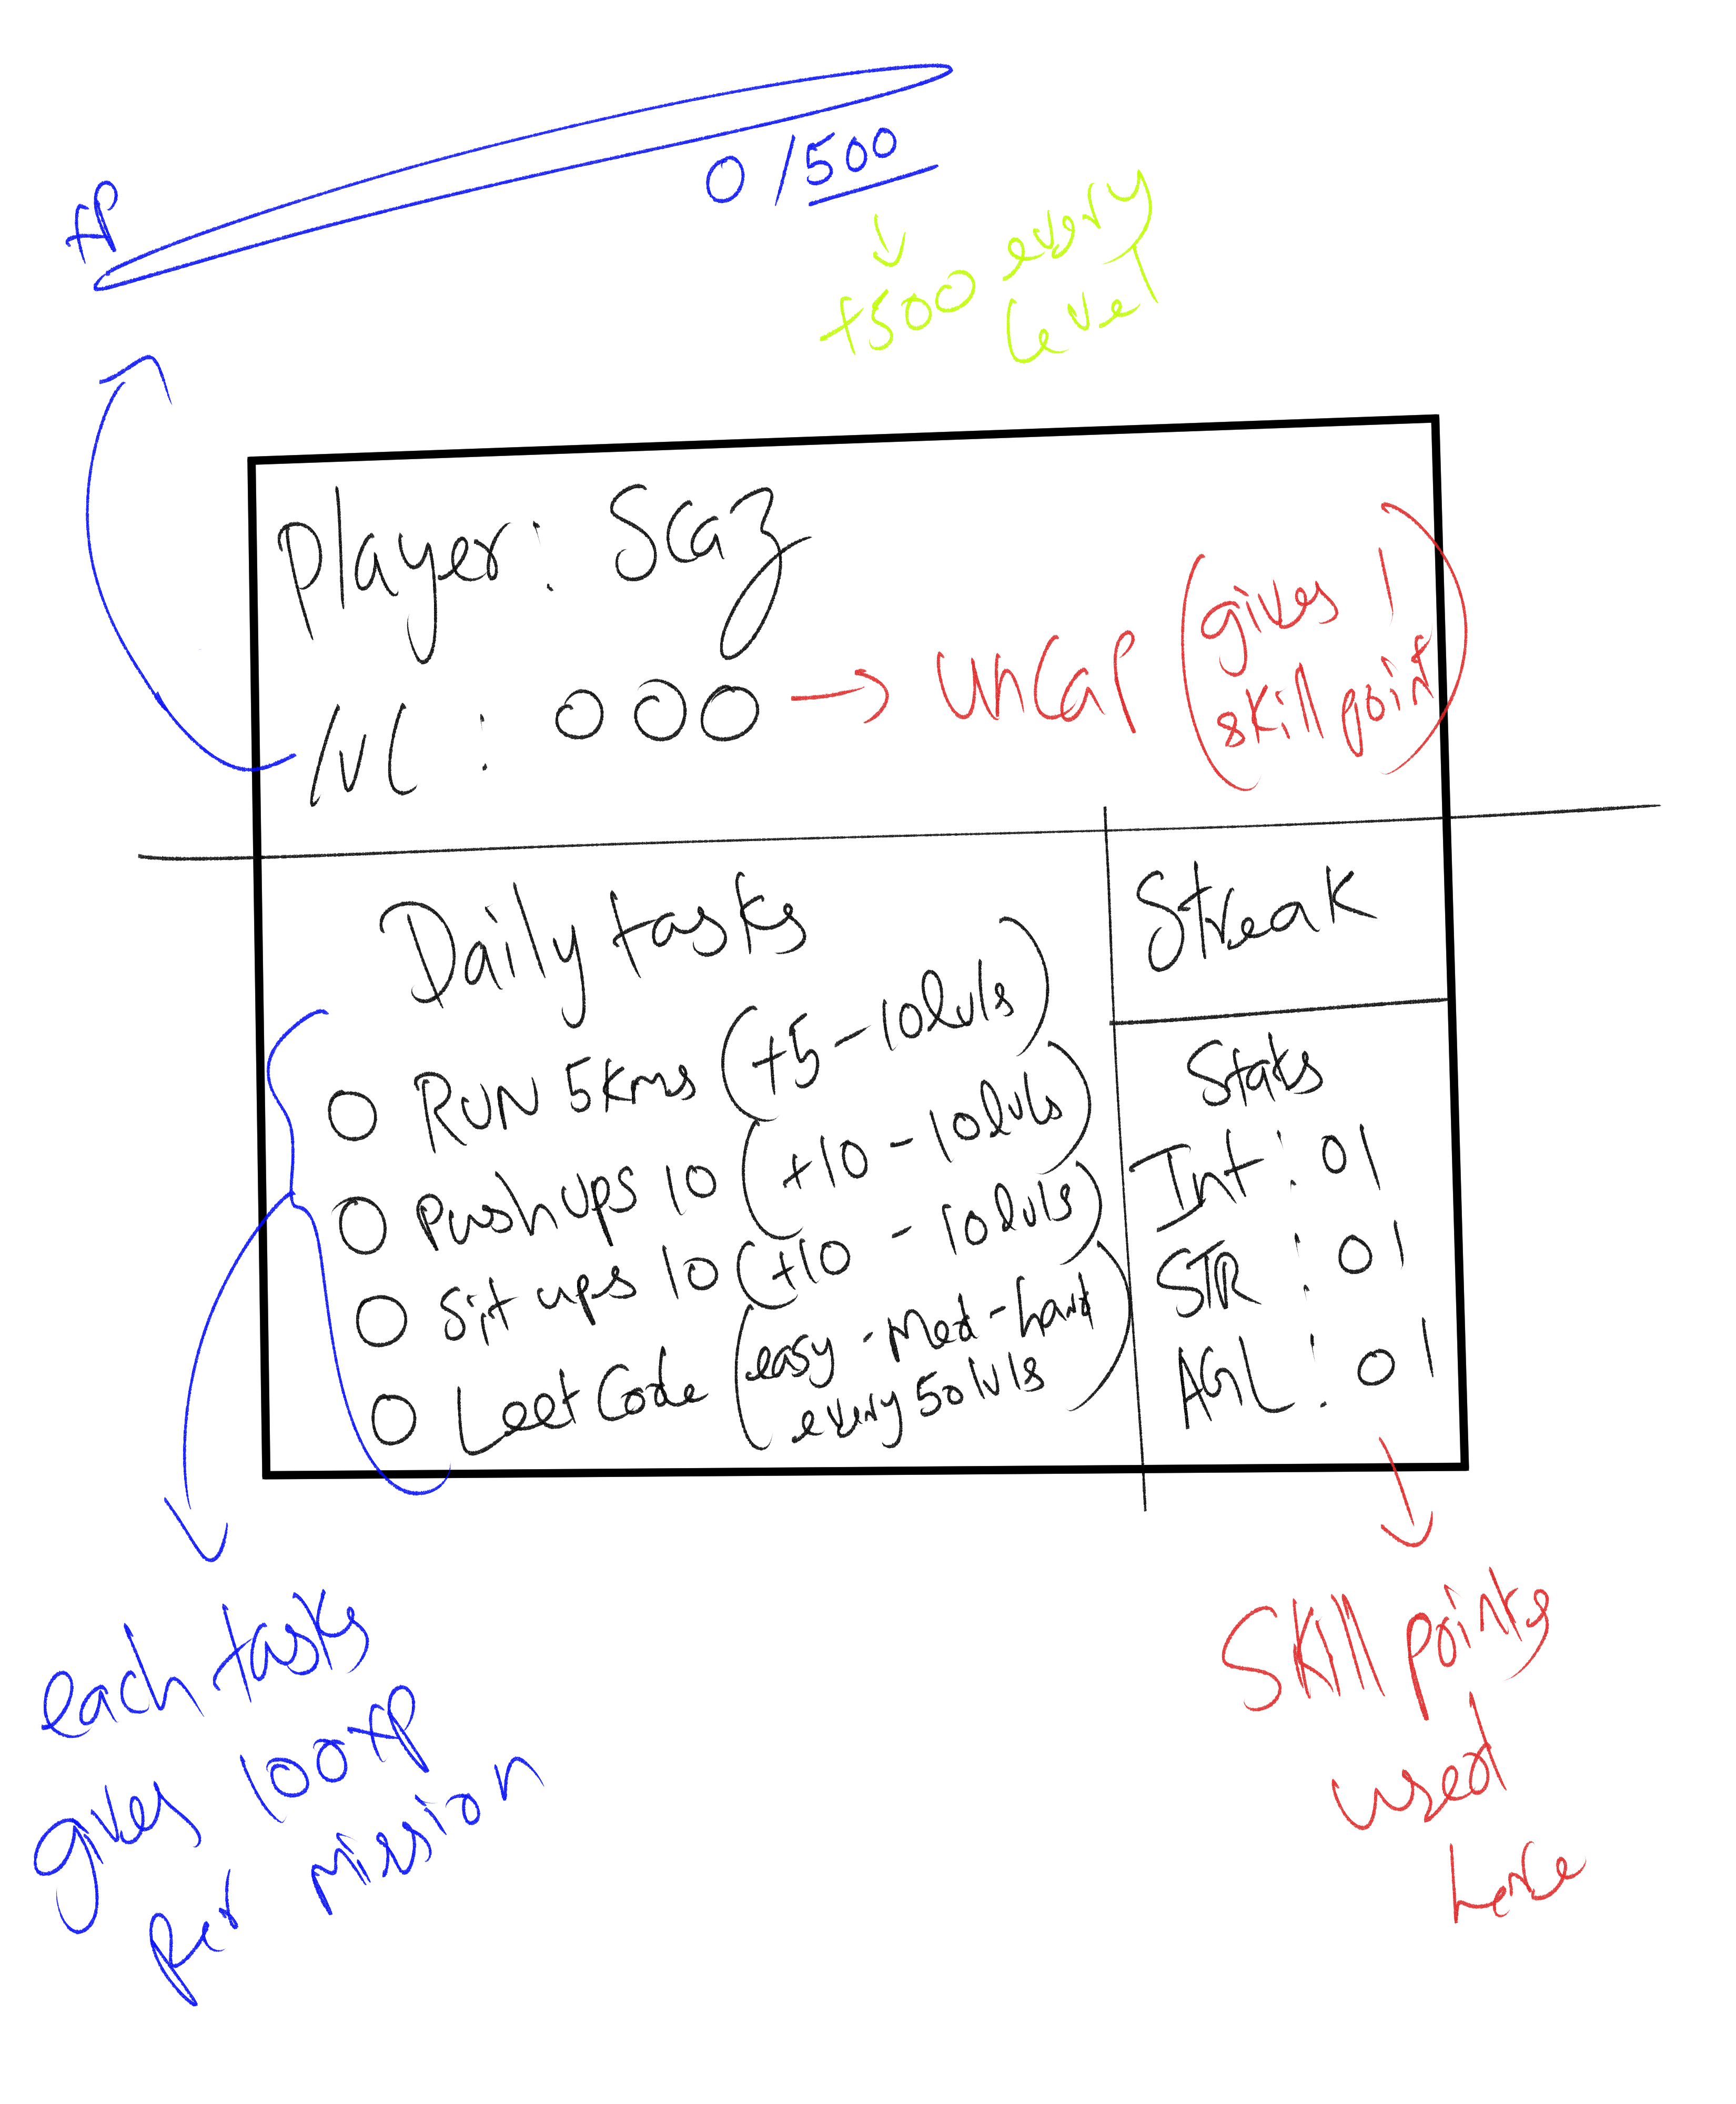 XP
0/500
+500 every
level
Player: Scaz
lvl : 000 → uncap (gives 1
skill point)
Daily tasks
RUN 5kms (+5 - 10lvls)
Pushups 10 (+10 - 10lvls)
Sit ups 10 (+10 - 10lvls)
LeetCode (easy - Med - hard
every 50lvls)
Streak
Stats
Int : 01
STR : 01
AGL : 01
each tasks
gives 100XP
per mission
Skill points
used
here